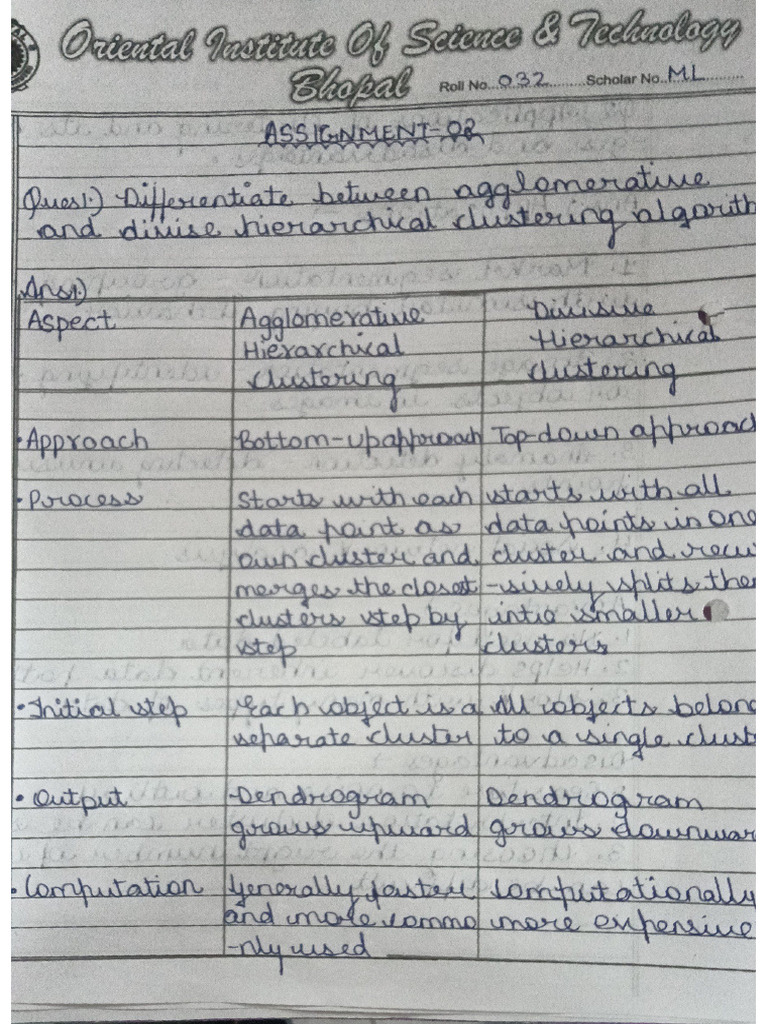 Oriental Institute Of Science & Technology
Bhopal Roll No...032.........Scholar No...ML.........
ASSIGNMENT-02
Ques1.) Differentiate between agglomerative
and divise hierarchical clustering algorith
Ans1.)
Aspect Agglomerative Divisive
Hierarchical Hierarchical
clustering clustering
• Approach Bottom-up approach Top-down approac
• Process starts with each starts with all
data point as data points in one
own cluster and cluster and recu
merges the closest -sively splits the
clusters step by into smaller
step clusters
• Initial step Each object is a All objects belong
separate cluster to a single clust
• Output Dendrogram Dendrogram
grows upward grows downwar
• Computation Generally faster computationally
and more commo more expensive
-nly used